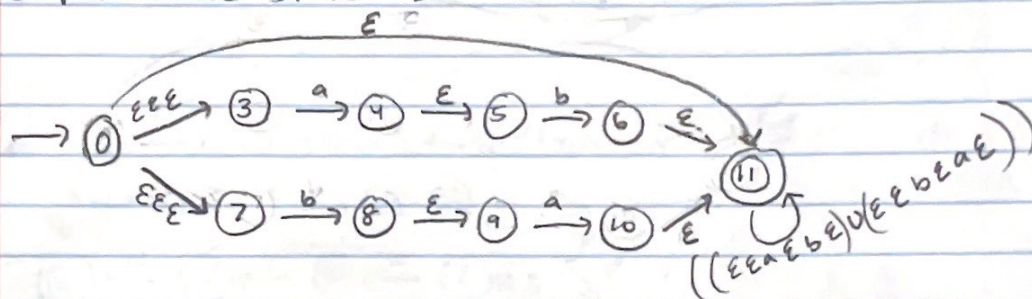 ε
εεε 3 a 4 ε 5 b 6 ε
0
11
εεε 7 b 8 ε 9 a 10 ε
((εεaεbε)∪(εεbεaε))